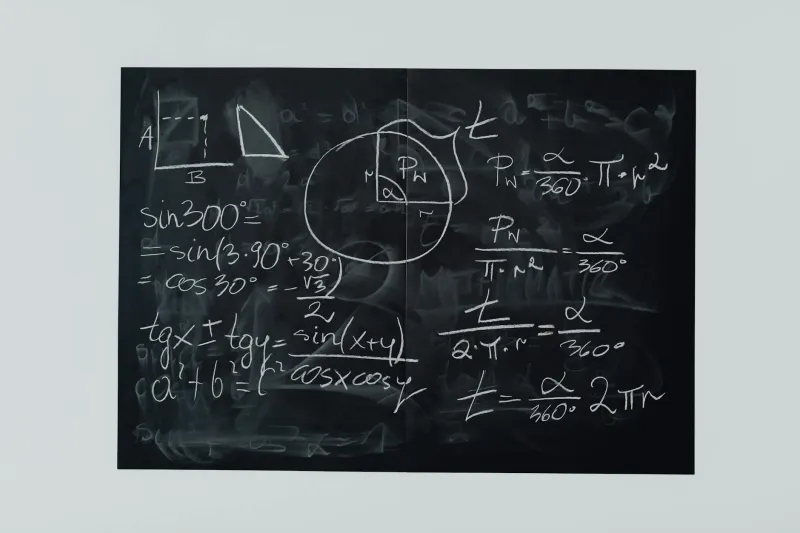 A
B
sin300°=
= sin(3·90°+30°)
= cos30° = -√3/2
tgx ± tgy = sin(x+y)/cosxcosy
a²+b²=c²
t
r
Pw
α
r
Pw = α/360° · π · r²
Pw/π·r² = α/360°
t/2·π·r = α/360°
t = α/360° 2πr